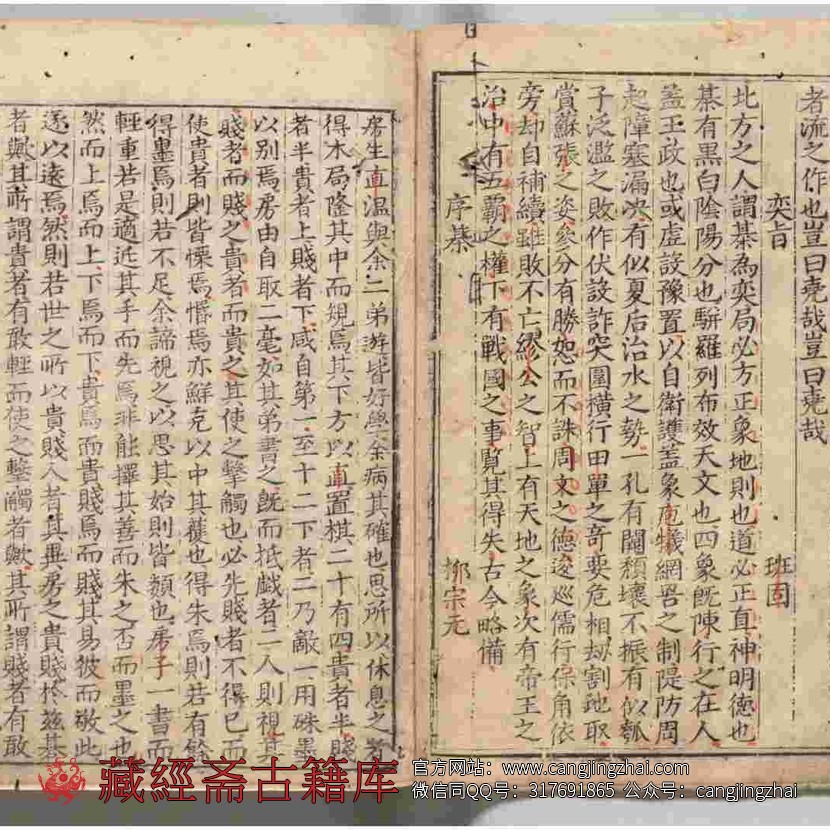 者流之作也豈曰堯哉豈曰堯哉
奕旨 班固
北方之人謂棊為奕局必方正象地則也道必正直神明德也
棊有黑白陰陽分也駢羅列布效天文也四象旣陳行之在人
蓋王政也或虛設豫置以自衛護蓋象庖犧網罟之制隄防周
起障塞漏决有似夏后治水之勢一孔有闕頹壞不振有似瓠
子泛濫之敗作伏設詐突圍橫行田單之奇要危相劫割地取
賞蘇張之姿參分有勝恕而不誅周文之德逡巡儒行保角依
旁却自補續雖敗不亡繆公之智上有天地之象次有帝王之
治中有五霸之權下有戰國之事覽其得失古今略備
序棊 柳宗元
房生直温與余二弟游皆好學余病其確也思所以休息之者
得木局隆其中而規焉其下方以直置棋二十有四貴者半賤
者半貴者上賤者下咸自第一至十二下者二乃敵一用硃墨
以别焉房由自取二毫如其弟書之旣而抵戲者二人則視其
賤者而賤之貴者而貴之其使之擊觸也必先賤者不得巳而
使貴者則皆慄焉惛焉亦鮮克以中其獲也得朱焉則若有餘
得墨焉則若不足余諦視之以思其始則皆類也房子一書而
輕重若是適近其手而先焉非能擇其善而朱之否而墨之也
然而上焉而上下焉而下貴焉而貴賤焉而賤其易彼而敬此
遂以遠焉然則若世之所以貴賤人者其異房之貴賤於兹棊
者歟其所謂貴者有敢輕而使之擊觸者歟其所謂賤者有敢
藏經斋古籍库
官方网站：www.cangjingzhai.com
微信同QQ号：317691865 公众号：cangjingzhai